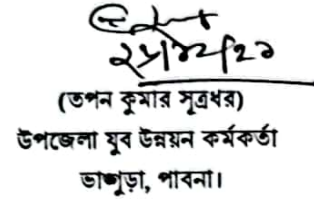 (তপন কুমার সূত্রধর)
উপজেলা যুব উন্নয়ন কর্মকর্তা
ভাঙ্গুড়া, পাবনা।